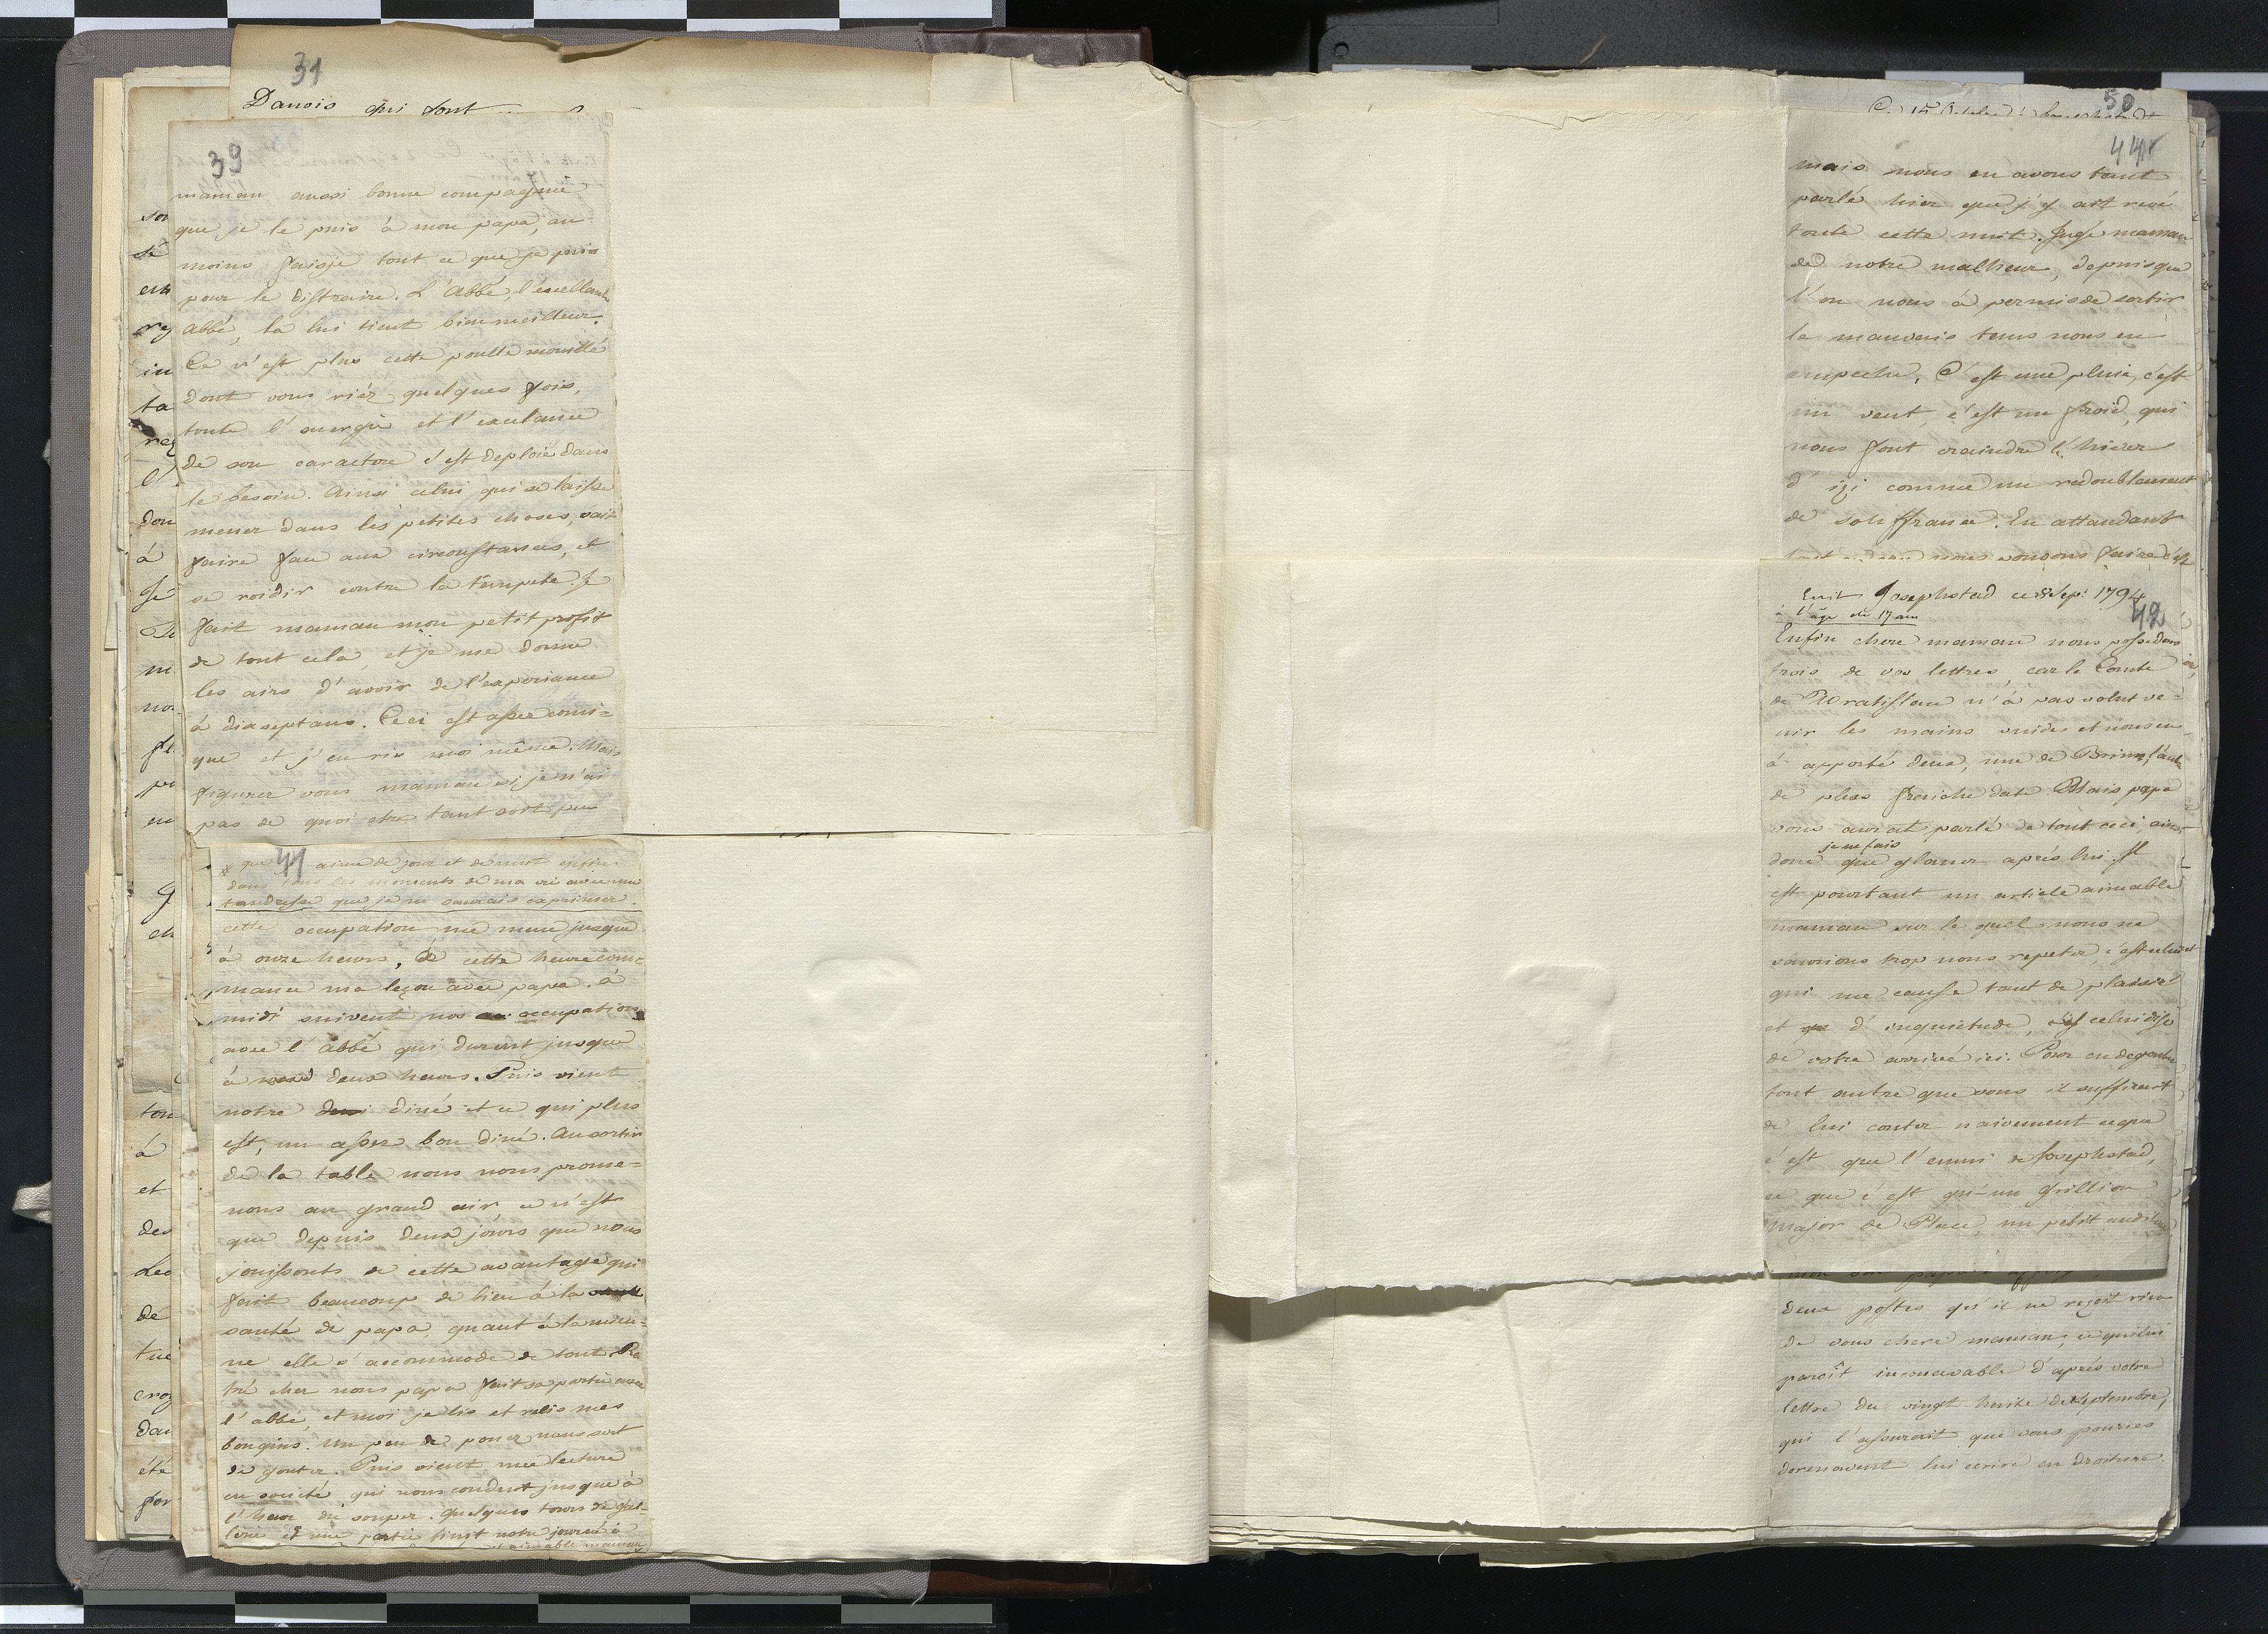 31
Danois qui sont
39
maman aussi bonne compagnie
que je le puis à mon papa, au
moins faisje tout ce que je puis
pour le distraire. L'Abbé, l'excellant
abbé, la lui tient bien meilleur.
Ce n'est plus cette poulle mouillé
dont vous riéz quelques fois,
toute l'energie et l'exelance
de son caractere s'est deploié dans
le besoin. Ainsi celui qui se laisse
mener dans les petites choses, sait
faire face aux circonstances, et
se roidir contre la tempete. Je
fait maman mon petit profit
de tout cela, et je me donne
les airs d'avoir de l'experiance
à dixseptans. Ceci est assez comi=
que et j'en ris moi même. Mais
figurez vous maman si je n'ai
pas de quoi etre tant soit peu
41
que aime de jour et de nuit enfin
dans tous les moments de ma vie avec une
tandresse que je ne saurais exprimer.
cette occupation me mene jusque
à onze heurs, à cette heure com=
mance ma leçon avec papa. à
midi suivent nos occupations
avec l'abbé qui durent jusque
à deux heurs. Puis vient
notre diné et ce qui plus
est, un assez bon diné. Au sortir
de la table nous nous prome=
nons au grand air, ce n'est
que depuis deux jours que nous
jouissons de cette avantage qui
fait beaucoup de bien à la
santé de papa, quant à la mien=
ne elle s'accommode de tout. Ren
tré chez nous papa fait sa partie avec
l'abbé, et moi je lis et relis mes
bouqins. Un peu de poires nous sert
de gouter. Puis vient une lecture
en société qui nous conduit jusque à
l'heur du souper. Quelques tours de gal=
lerie et une partie finit notre journée
et aimable maman
50
44
mais nous en avons tant
parlé hier que j'y ait revé
toute cette nuit. Jugé maman
de notre malheur, depuis que
l'on nous à permis de sortir
le mauvais tems nous en
empeche. C'est une pluie, c'est
un vent, c'est un froid, qui
nous font craindre l'hiver
d'ici comme un redoublement
de souffrance. En attandant
42
Ecrit Josephstad ce Sep: 1794
à l'âge de 17 ans
Enfin chere maman nous possedons
trois de vos lettres, car le Comte
de Wratislau n'à pas volut ve=
nir les mains vuides et nous en
à apporté deux, une de Brinn, l'autre
de plus fraiche date. Mais papa
vous aurat parlé de tout ceci, ainsi
donc je ne fais que glaner après lui. Il
est pourtant un article aimable
maman sur le quel nous ne
saurions trop nous repeter, c'est celui
qui me cause tant de plaisir
et d'inquietude, celui disje
de votre arrivé ici. Pour en degouter
tout autre que vous il suffirait
de lui conter naivement ce que
c'est que l'ennui de Josephstad,
ce que c'est qu'un Grillion
major de Place, un petit auditeur
deux postes qu'il ne reçoit rien
de vous chere maman, ce qui lui
paroit inconcevable d'aprés votre
lettre du vingt huite de Septembre,
qui l'assurait que vous pouriés
dorenavent lui ecrire en droiture.